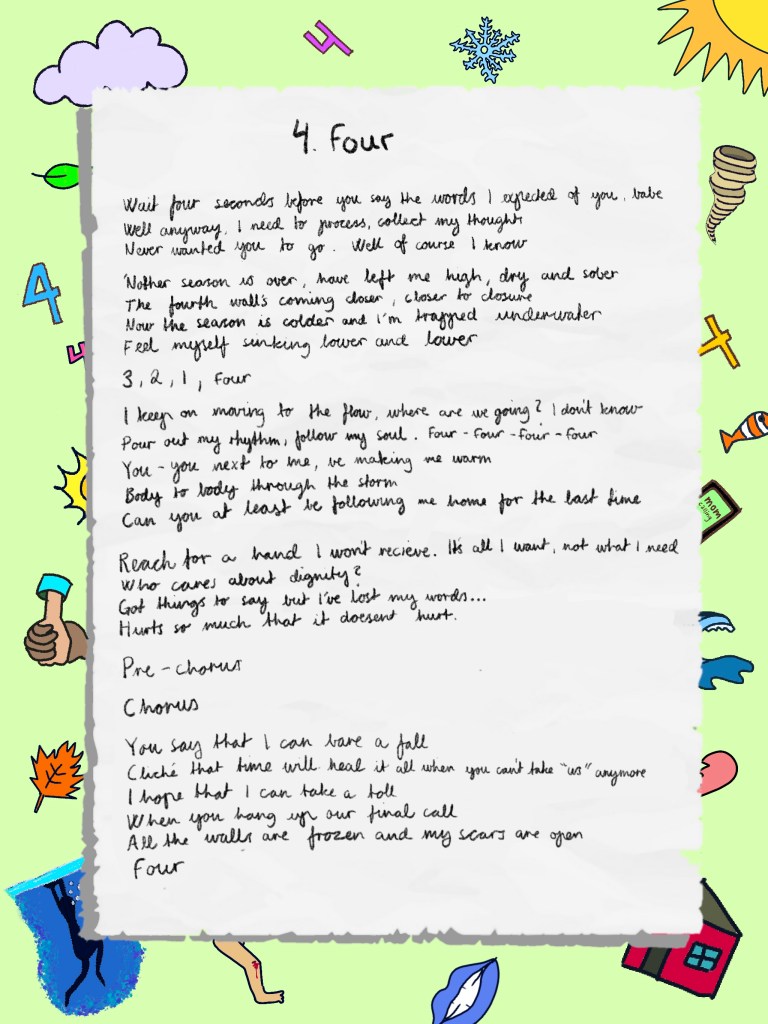 4
4. Four
Wait four seconds before you say the words I expected of you, babe
Well anyway, I need to process, collect my thoughts
Never wanted you to go. Well of course I know
'Nother season is over, have left me high, dry and sober
The fourth wall's coming closer, closer to closure
Now the season is colder and I'm trapped underwater
Feel myself sinking lower and lower
3, 2, 1, Four
I keep on moving to the flow, where are we going? I don't know
Pour out my rhythm, follow my soul. Four - Four - Four - Four
You - you next to me, ve making me warm
Body to body through the storm
Can you at least be following me home for the last time
Reach for a hand I won't recieve. It's all I want, not what I need
Who cares about dignity?
Got things to say but I've lost my words...
Hurts so much that it doesent hurt.
Pre-chorus
Chorus
You say that I can bare a fall
Cliché that time will heal it all when you can't take "us" anymore
I hope that I can take a toll
When you hang up our final call
All the walls are frozen and my scars are open
Four
4
4
4
mom
calling